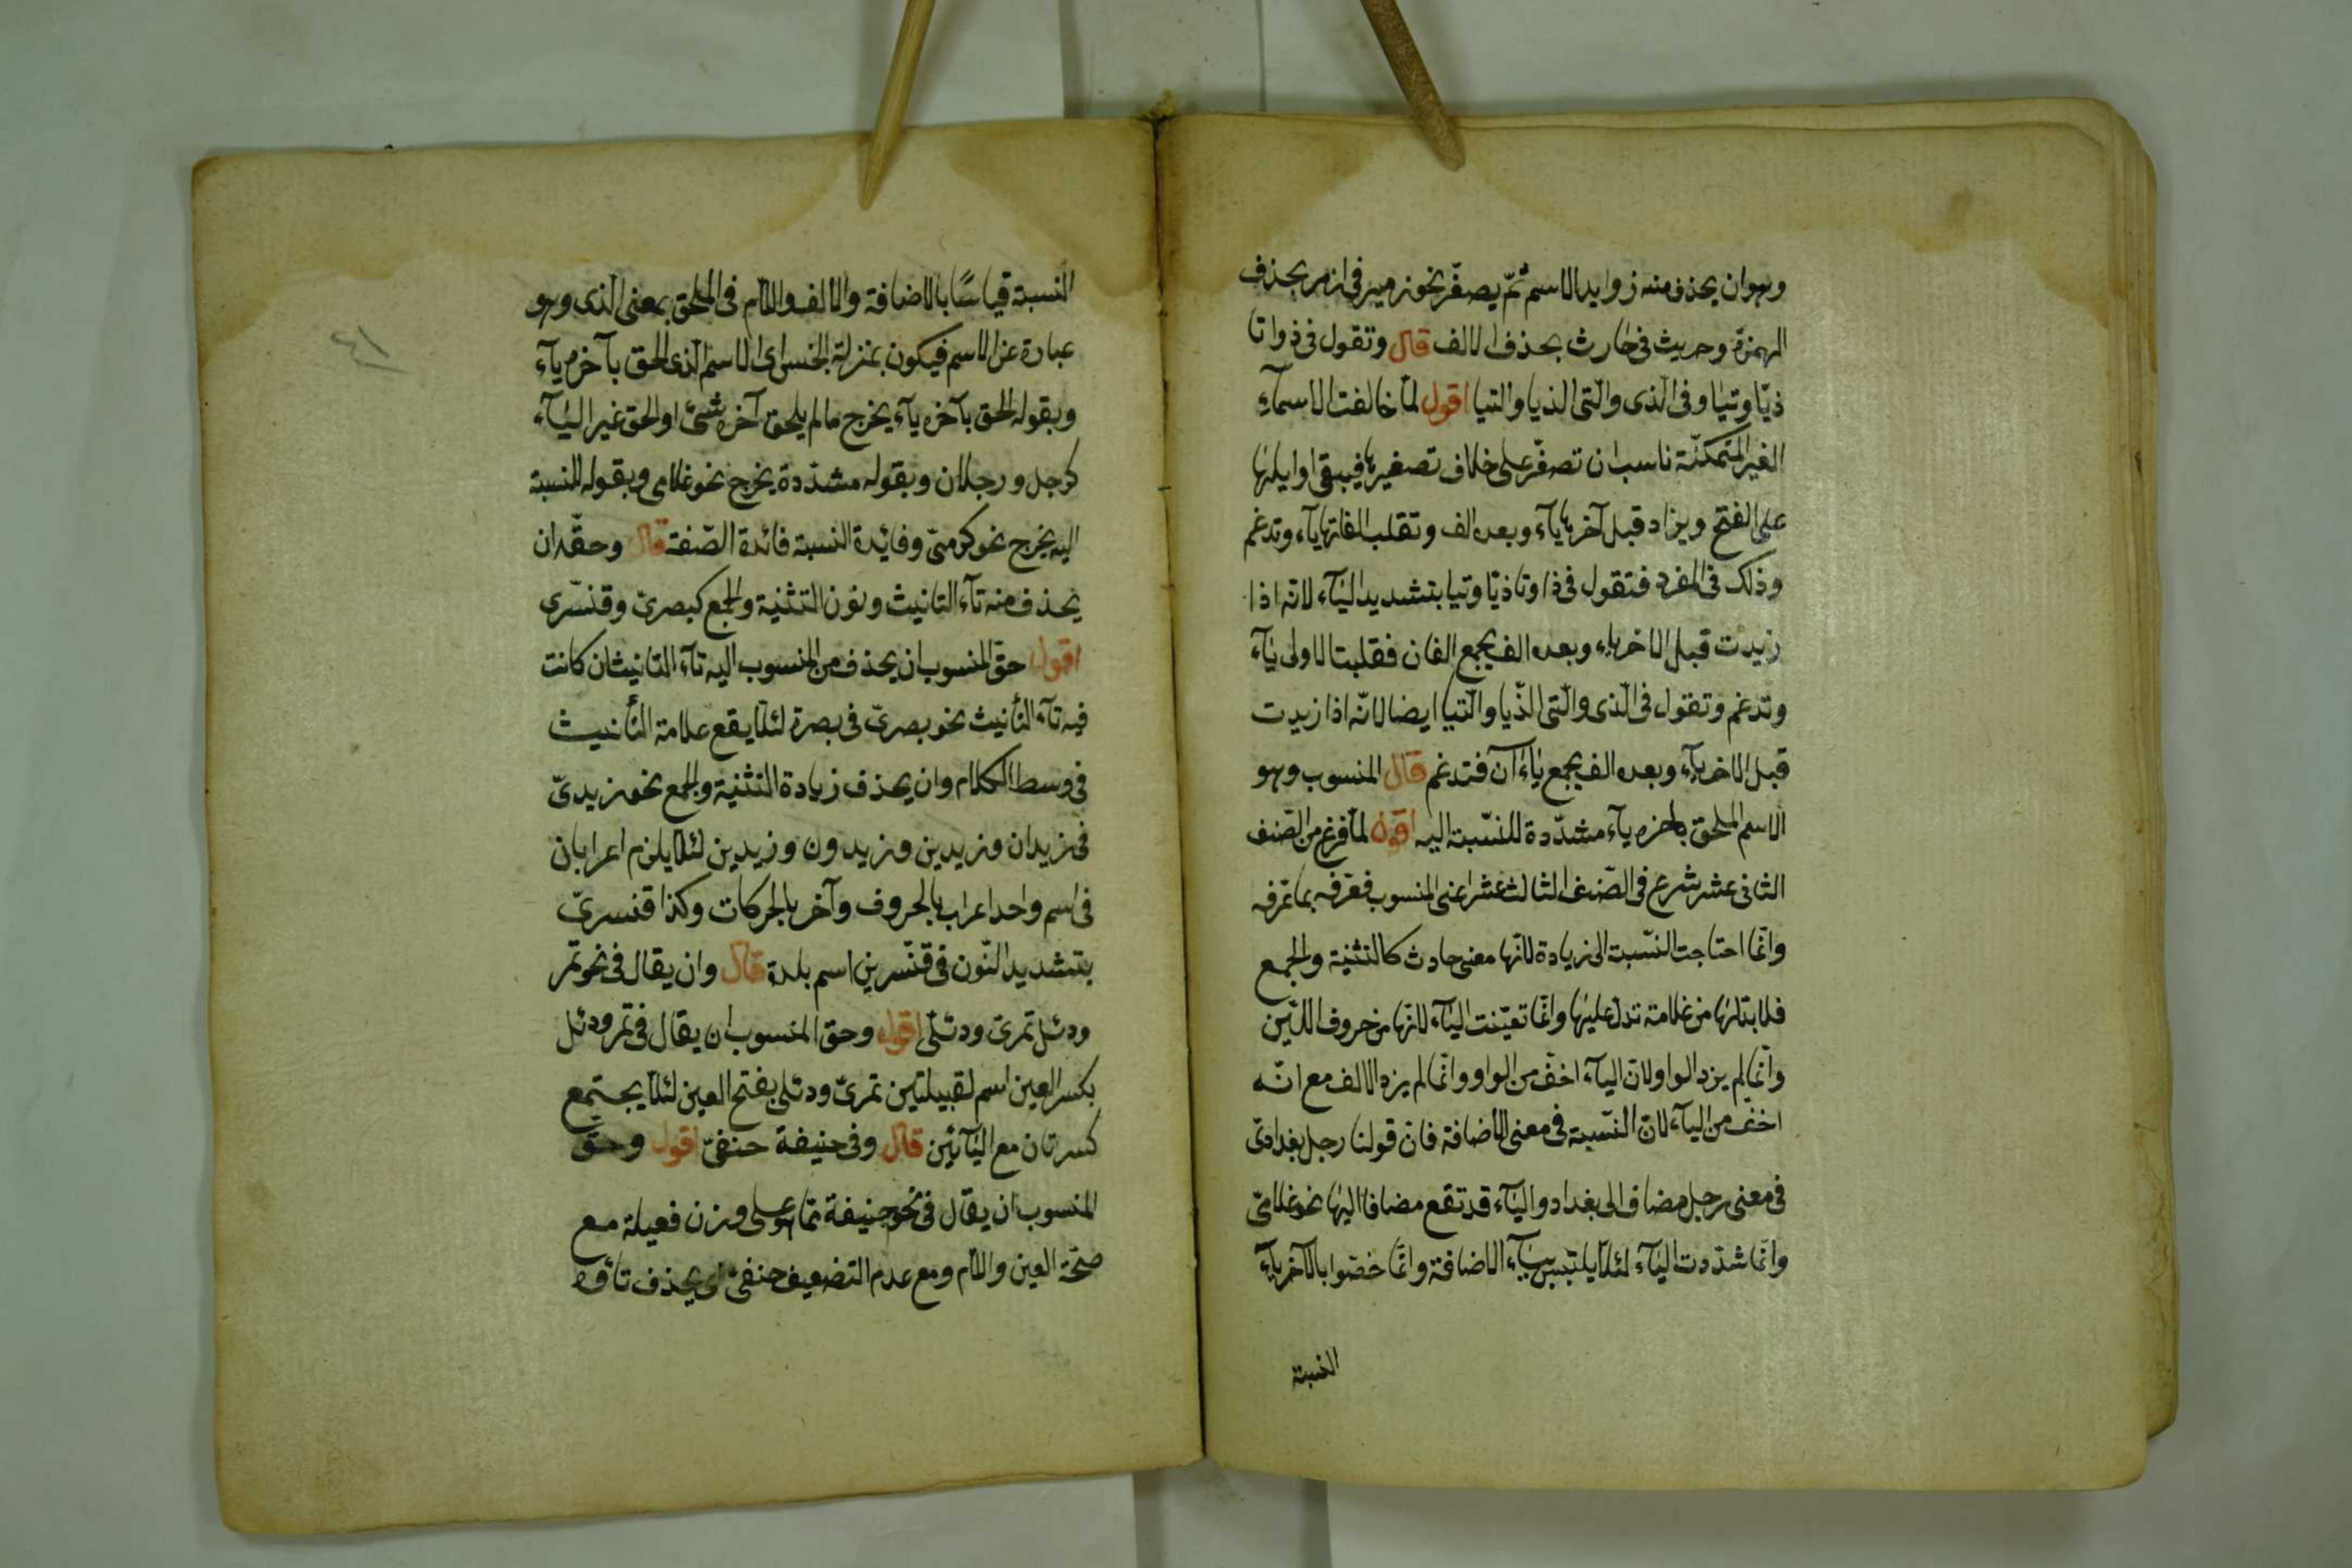 وهو ان يحذف منه زوايد الاسم ثمّ يصغّر نحو زمير فى ازمر بحذف
الهمزة وحريث فى حارث بحذف الالف قال وتقول فى ذا وتا
ذيّا وتيّا وفى الّذى والّتى الذيا والتيا اقول لمّا خالفت الاسمآء
الغير المتمكنّة ناسب ان تصغّر على خلاف تصغيرها فيبقى اوايلها
على الفتح ويزاد قبل آخرها يآء وبعده الف وتقلب الفاتها يآء وتدغم
وذلك فى المفرد فتقول فى ذا وتا ذيّا وتيا بتشديد اليآء لانّه اذا
زيدت قبل الاخر يآء وبعده الف يجمع الفان فقلبت الاولى يآء
وتدغم وتقول فى الّذى والّتى الذّيا والّتيا ايضا لانّه اذا زيدت
قبل الاخر يآء وبعده الف يجمع ياءآن فتدغم قال المنسوب وهو
الاسم الملحق باخره يآء مشدّدة للنسّبة اليه اقول لمّا فرغ من الصّنف
الثانى عشر شرع فى الصّنف الثالث عشر اعنى المنسوب فعرّفه بما عرّفه
وانّما احتاجت النسّبة الى زيادة لانّها معنى حادث كالتثنية والجمع
فلا بدّ لها من علامة تدلّ عليها وانّما تعيّنت اليآء لانّها من حروف اللّين
وانّما لم يزد الواو لانّ اليآء اخفّ من الواو وانّما لم يزد الالف مع انّه
اخف من اليآء لانّ النسّبة فى معنى الاضافة فانّ قولنا رجل بغدادىّ
فى معنى رجل مضاف الى بغداد واليآء قد تقع مضافا اليها نحو غلامىّ
وانّما شدّدت اليآء لئلّا يلتبس بيآء الاضافة وانّما خصّوا بالآخر يآء
النسبة
٤١
النسبة قياسًا بالاضافة والالف واللّام فى الملحق بمعنى الّذى وهو
عبارة عن الاسم فيكون بمنزلة الجنس اى الاسم الّذى الحق بآخره يآء
وبقوله الحق بآخره يآء يخرج ما لم يلحق آخره شىء او الحق غير اليآء
كرجل ورجلان وبقوله مشدّدة يخرج نحو غلامى وبقوله للنسبة
اليه يخرج نحو كرسىّ وفائدة النسبة فائدة الصّفة قال وحقّه ان
يحذف منه تآء التانيث ونون التثنية والجمع كبصرىّ وقنسّرى
اقول حقّ المنسوب ان يحذف من المنسوب اليه تآء التانيث ان كانت
فيه تآء التأنيث نحو بصرىّ فى بصرة لئلّا يقع علامة التأنيث
فى وسط الكلام وان يحذف زيادة التثنية والجمع نحو زيدىّ
فى زيدان وزيدين وزيدون وزيدين لئلّا يلزم اعرابان
فى اسم واحد اعراب بالحروف وآخر بالحركات وكذا قنسرىّ
بتشديد النّون فى قنّسرين اسم بلدة قال وان يقال فى نحو نمر
ودئل نمرىّ ودئلىّ اقول وحقّ المنسوب ان يقال فى نمر ودئل
بكسر العين اسم لقبيلتين نمرىّ ودئلى بفتح العين لئلّا يجتمع
كسرتان مع اليآئين قال وفى حنيفة حنفىّ اقول وحقّ
المنسوب ان يقال فى نحو حنيفة ممّا هو على وزن فعيلة مع
صحّة العين واللّام ومع عدم التضعيف حنفىّ اى يحذف تاؤه